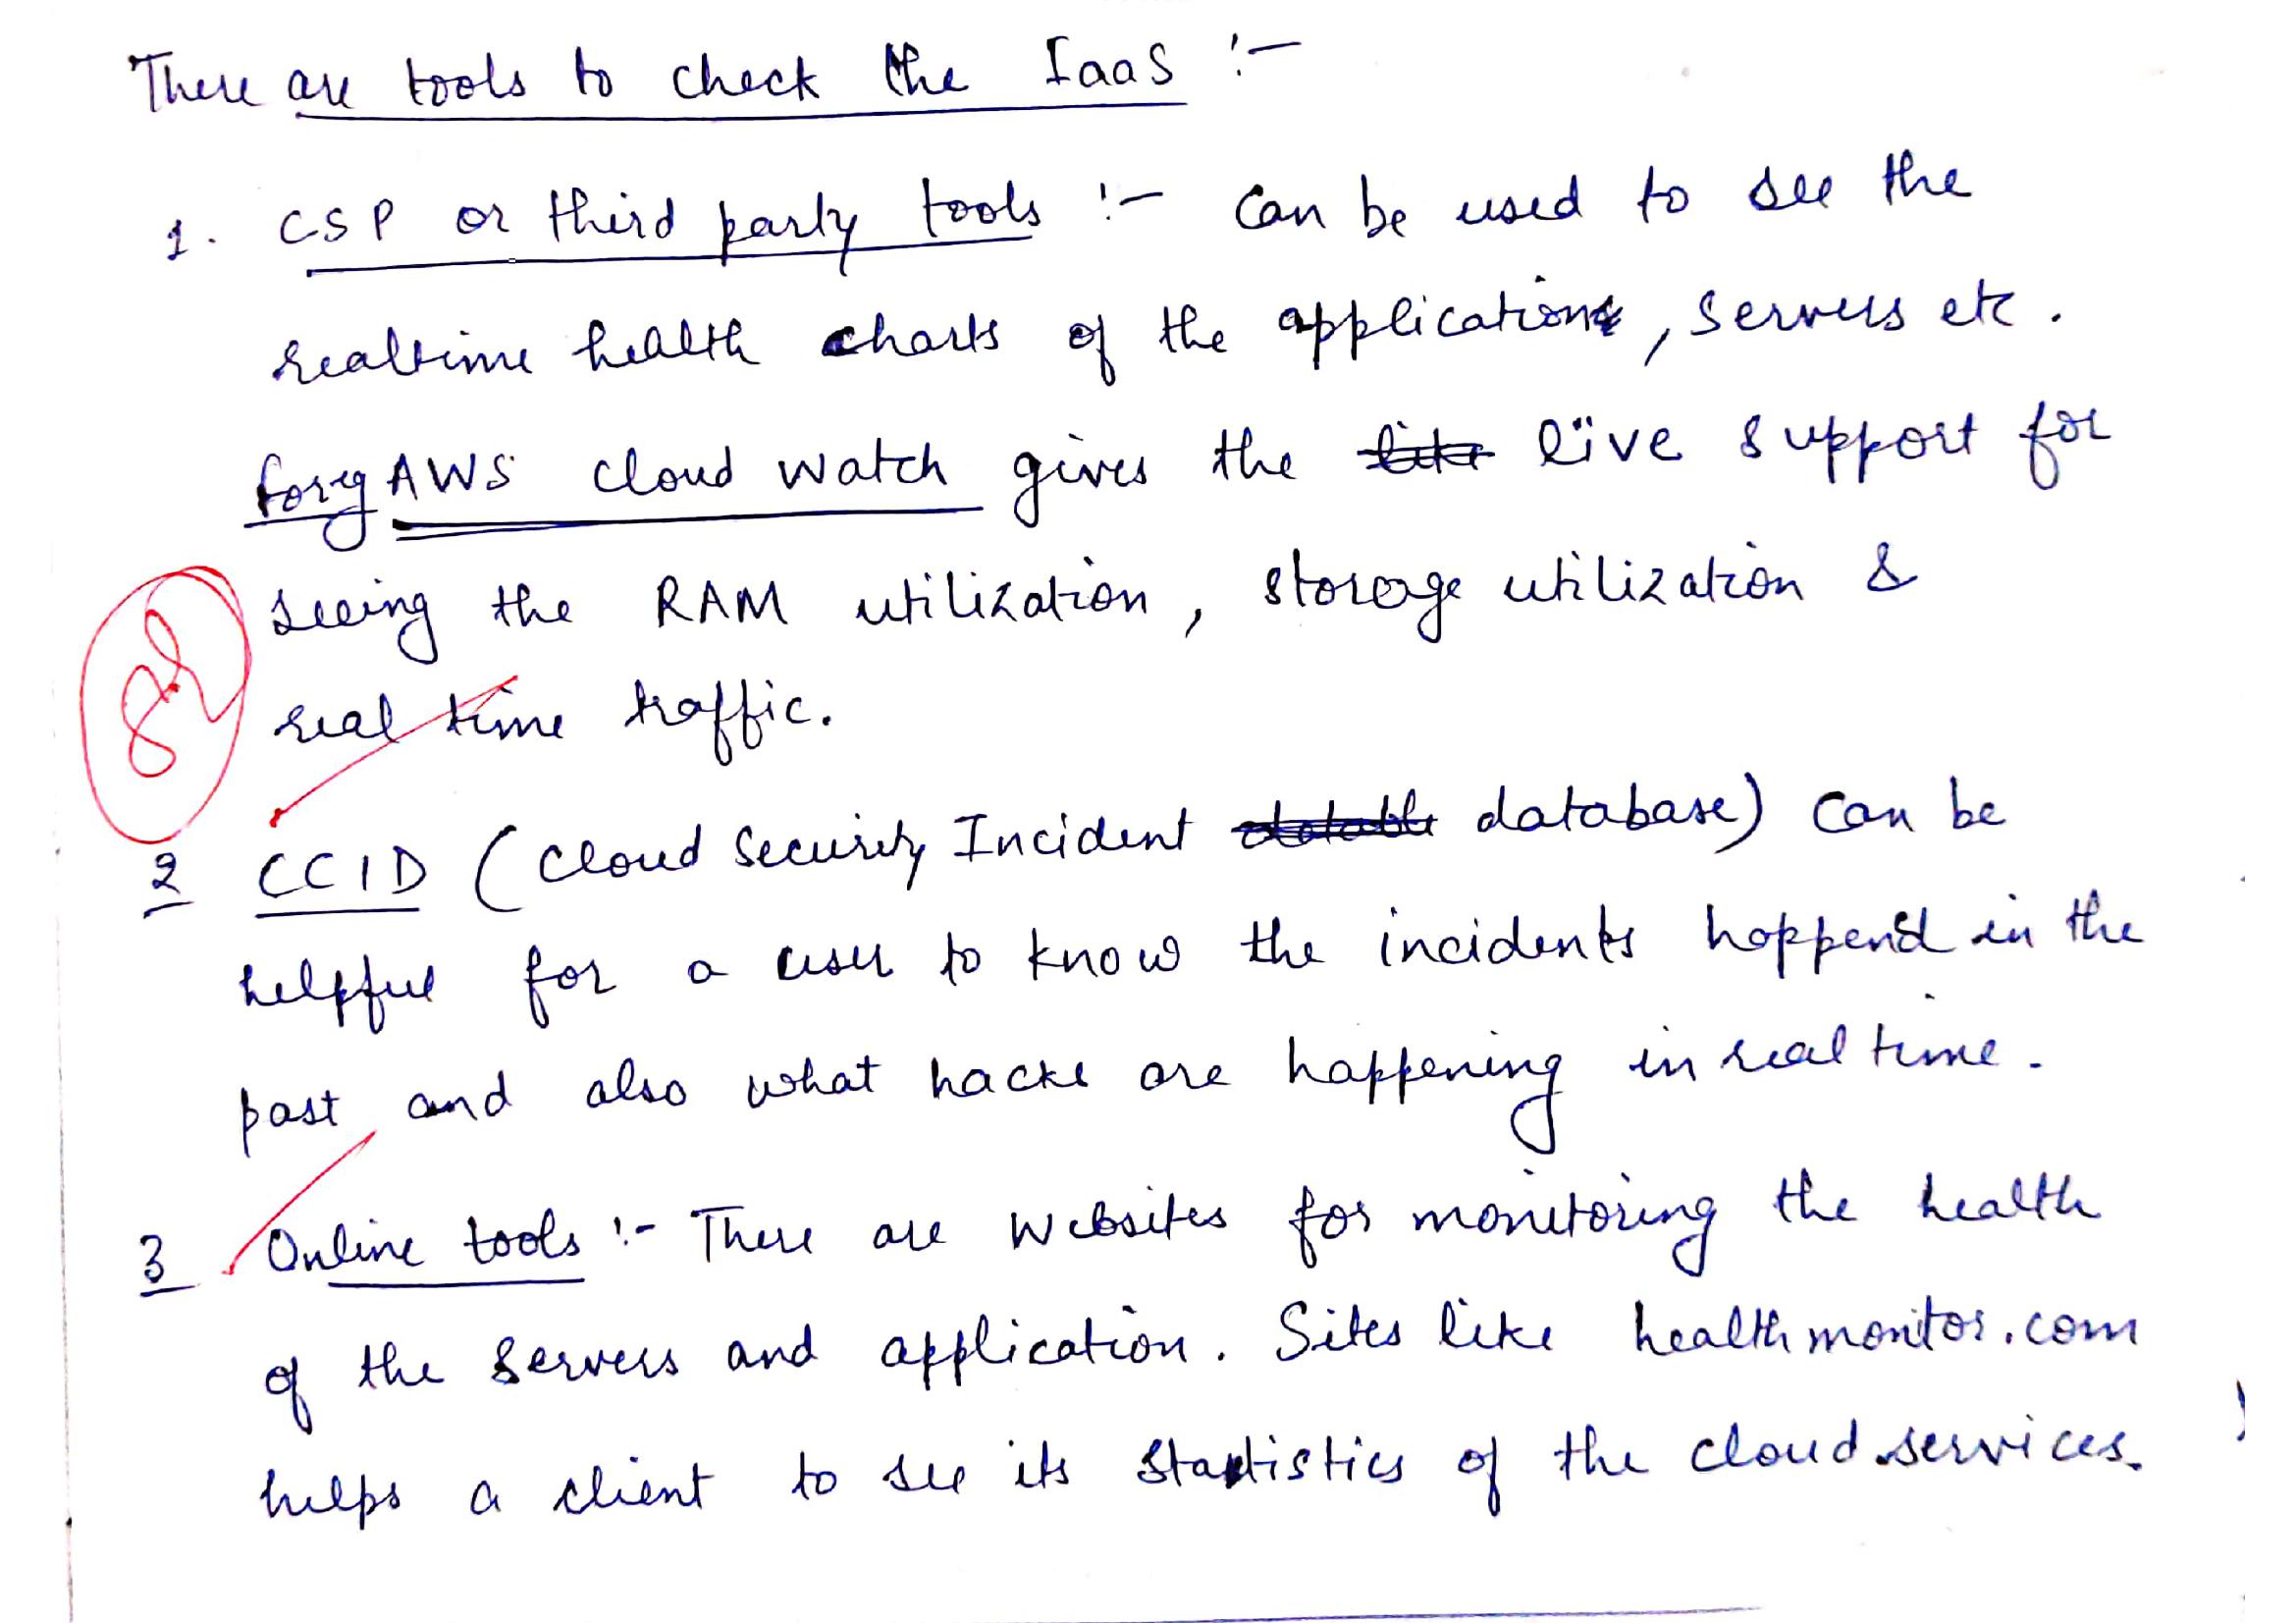 There are tools to check the IaaS :-
1. CSP or third party tools :- can be used to see the
realtime health charts of the applications, servers etc.
foreg AWS cloud watch gives the live support for
seeing the RAM utilization, storage utilization &
real time traffic.
2 CCID (Cloud Security Incident database) can be
helpful for a user to know the incidents happend in the
past and also what hacks are happening in real time.
3 Online tools :- There are websites for monitoring the health
of the servers and application. Sites like healthmonitor.com
helps a client to see its statistics of the cloud services.